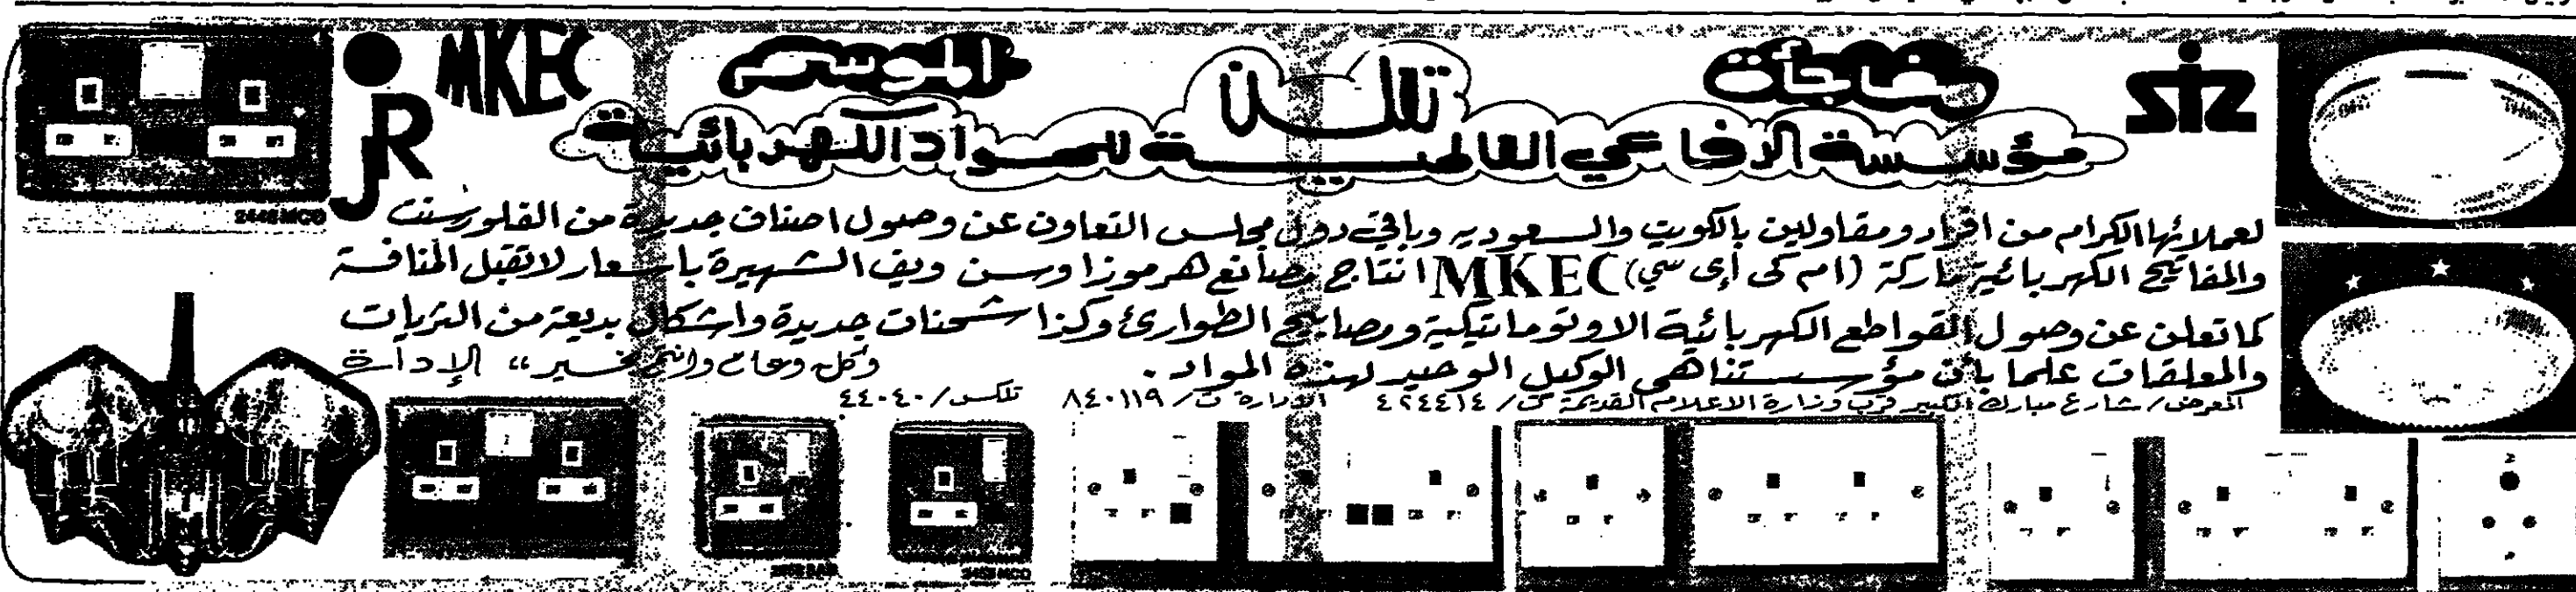 مفاجأت
الموسم
تعلن
مؤسسة الرفاعي العالمية للمواد الكهربائية
siz
MKEC
jR
لعملائها الكرام من افراد ومقاولين بالكويت والسعوديه وباقي دول مجلس التعاون عن وصول اصناف جديدة من الفلورسنت
والمفاتيح الكهربائية ماركة (ام كى إى سي) MKEC انتاج مصانع هرموزا وسن ويف الشهيرة باسعار لاتقبل المنافسة
كما تعلن عن وصول القواطع الكهربائية الاوتوماتيكية ومصابيح الطوارئ وكذا شحنات جديدة واشكال بديعة من الثريات
والمعلقات علما بأن مؤسستنا هى الوكيل الوحيد لهذه المواد .
وكل وعام وانتم بخير ،، الإدارة
المعرض / شارع مبارك الكبير قرب وزارة الاعلام القديمة ت / ٤٢٤٤١٤ الادارة ت / ٨٤٠١١٩ تلكس / ٤٤٠٤٠
2446 MCO